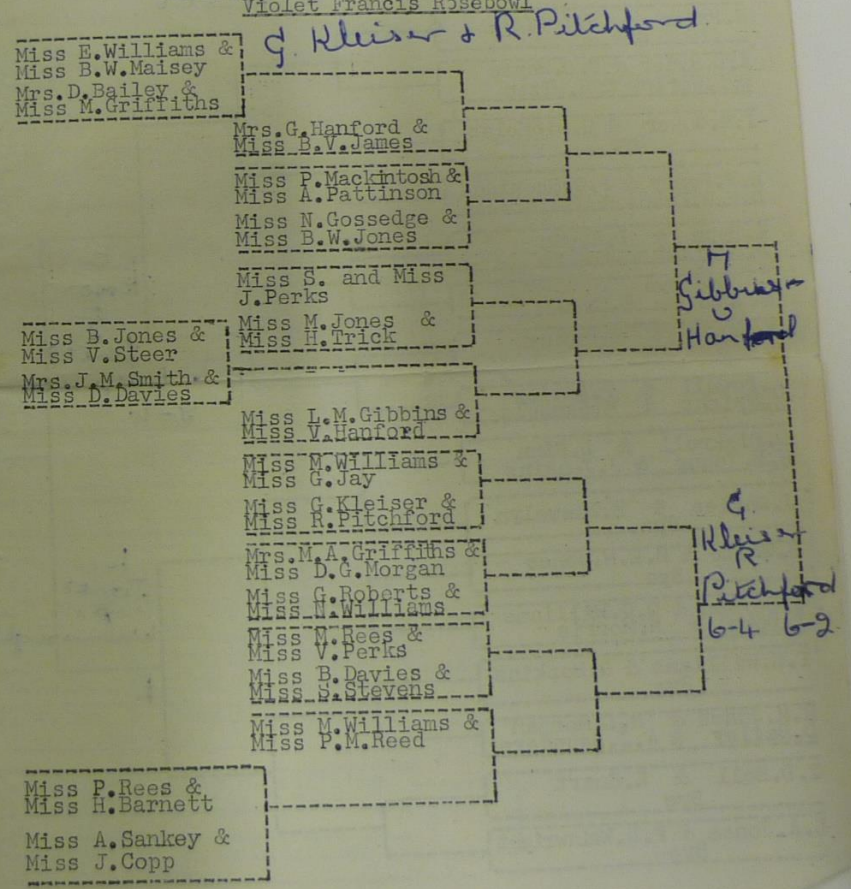 Violet Francis Rosebowl
G. Kleiser & R. Pitchford.
Miss E.Williams &
Miss B.W.Maisey
Mrs.D.Bailey &
Miss M.Griffiths
Mrs.G.Hanford &
Miss B.V.James
Miss P.Mackintosh &
Miss A.Pattinson
Miss N.Gossedge &
Miss B.W.Jones
Miss S. and Miss
J.Perks
Miss M.Jones &
Miss H.Trick
Miss B.Jones &
Miss V.Steer
Mrs.J.M.Smith &
Miss D.Davies
Miss L.M.Gibbins &
Miss V.Hanford
Miss M.Williams &
Miss G.Jay
Miss G.Kleiser &
Miss R.Pitchford
Mrs.M.A.Griffiths &
Miss D.G.Morgan
Miss G.Roberts &
Miss N.Williams
Miss M.Rees &
Miss V.Perks
Miss B.Davies &
Miss S.Stevens
Miss M.Williams &
Miss P.M.Reed
Miss P.Rees &
Miss H.Barnett
Miss A.Sankey &
Miss J.Copp
Gibbins
Hanford
G.
Kleiser
R.
Pitchford
6-4 6-2